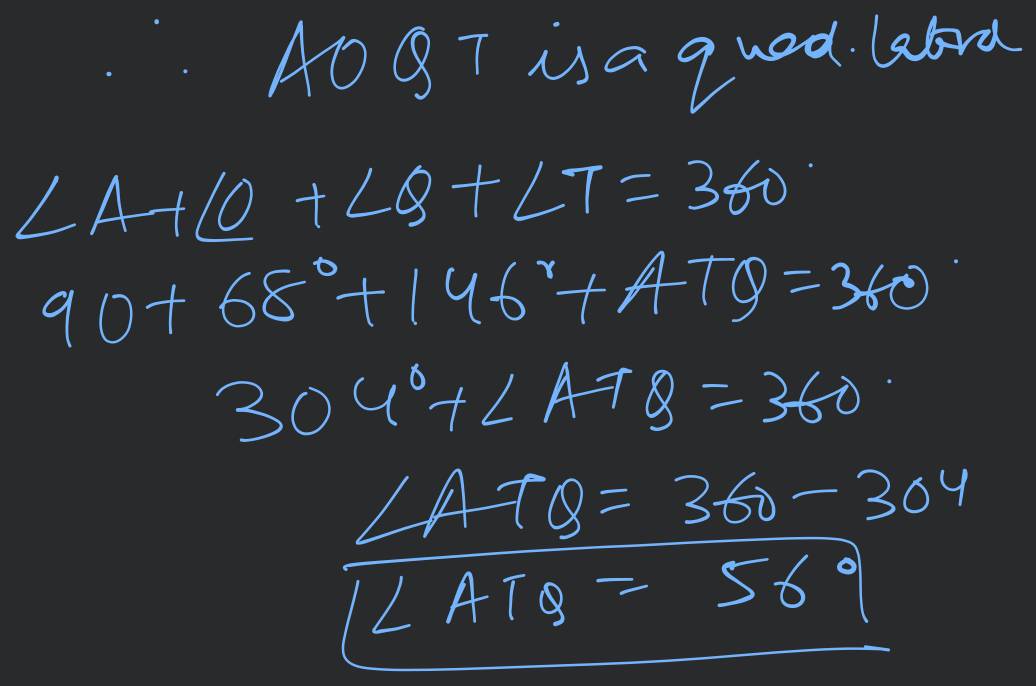 ∴ AOQT is a quadrilateral
∠A+∠O+∠Q+∠T=360°
90+68°+146°+ATQ=360°
304°+∠ATQ=360°
∠ATQ=360-304
∠ATQ=56°